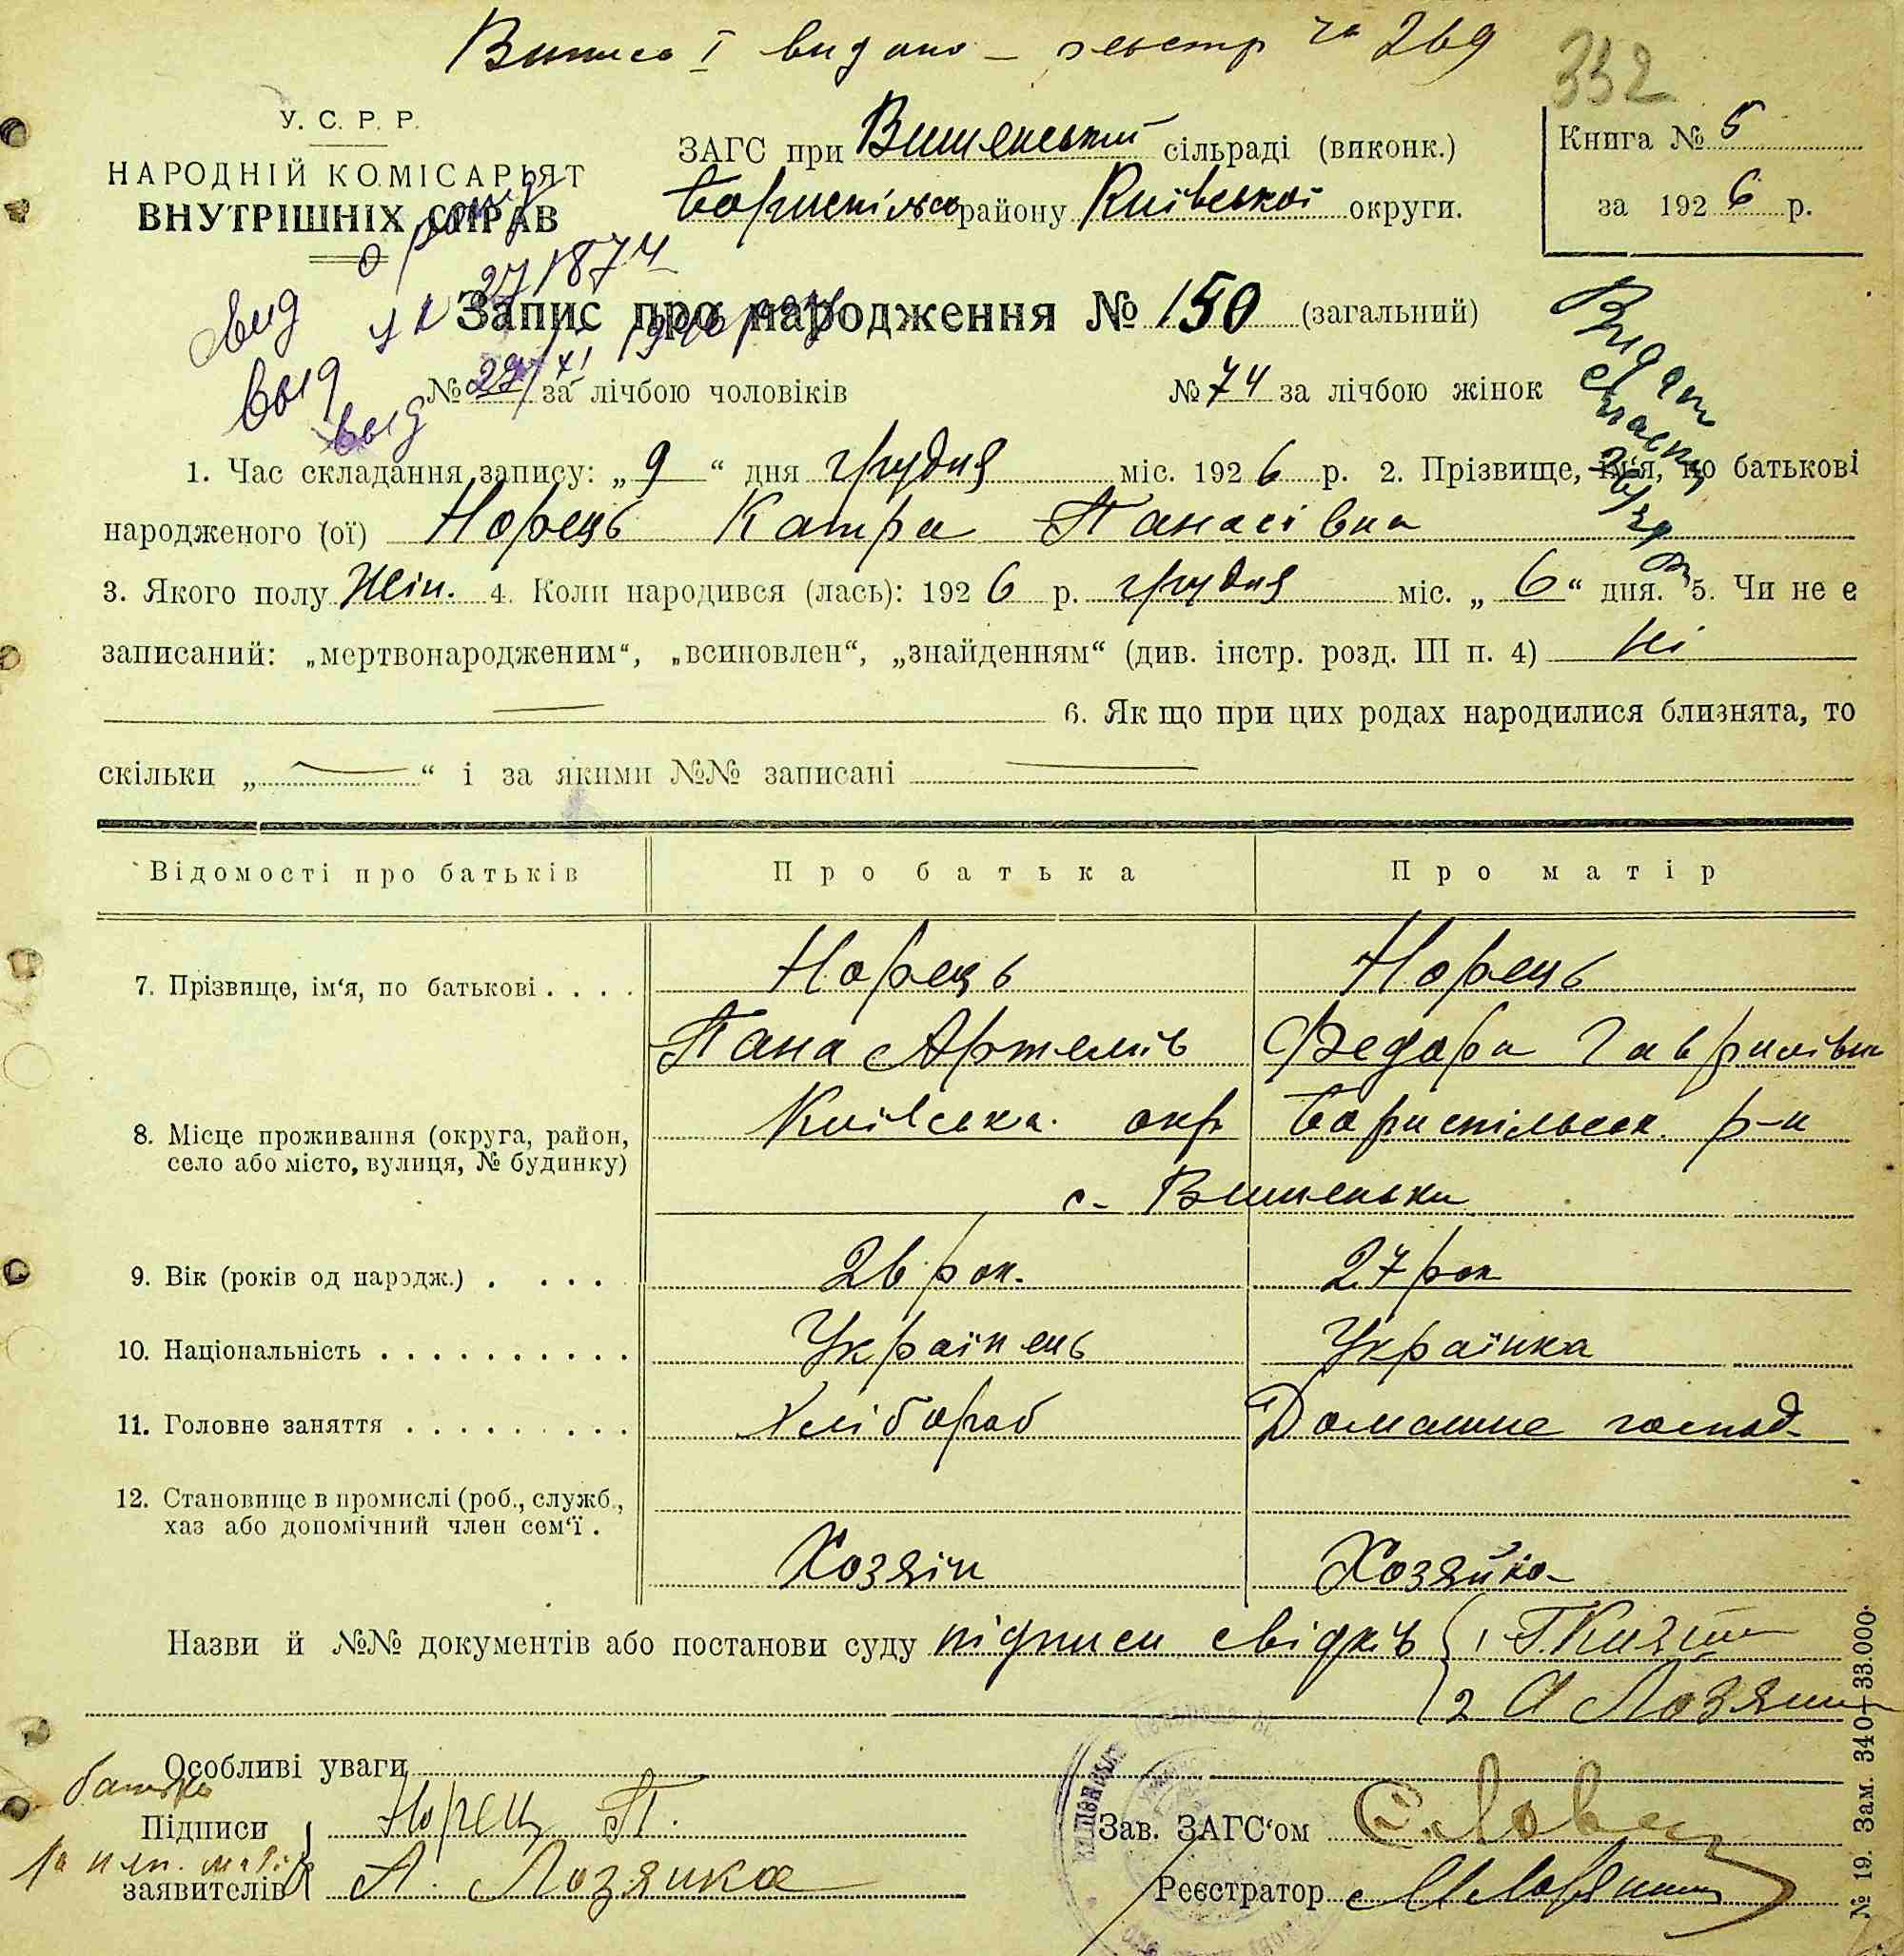 Випись I видано – реєстр за 269
332
У. С. Р. Р.
НАРОДНІЙ КОМІСАРЬЯТ
ВНУТРІШНІХ СПРАВ
ЗАГС при Вишенський сільраді (виконк.)
Бориспільсь району Київської округи.
Книга № 5
за 1926 р.
вид
выд
выд
Запис про народження № 150 (загальний)
№ за лічбою чоловіків
№ 74 за лічбою жінок
1. Час складання запису: „9“ дня грудня міс. 1926 р. 2. Прізвище, ім'я, по батькові
народженого (ої) Норець Катря Панасівна
3. Якого полу Жін. 4. Коли народився (лась): 1926 р. грудня міс. „6“ дня. 5. Чи не є
записаний: „мертвонародженим“, „всиновлен“, „знайденням“ (див. інстр. розд. III п. 4) Ні
6. Як що при цих родах народилися близнята, то
скільки „ “ і за якими №№ записані
Відомості про батьків Про батька Про матір
7. Прізвище, ім'я, по батькові . . . . Норець Норець
Пана Артемів Федора Гаврилівна
8. Місце проживання (округа, район, Київська. окр Бориспільськ. р-н
село або місто, вулиця, № будинку)
с. Вишеньки
9. Вік (років од народж.) . . . . 26 рок. 27 рок
10. Національність . . . . . . . . . . Українець Українка
11. Головне заняття . . . . . . . . . Хлібороб Домашнє господ-
12. Становище в промислі (роб., служб.,
хаз або допомічний член сем'ї .
Хозяін Хозяйка
Назви й №№ документів або постанови суду підписи свідків 1
2
Особливі уваги
батько
Підписи Норец П.
заявителів А. Лозянка
Зав. ЗАГС'ом
Реєстратор
№ 19. Зам. 340—33.000.